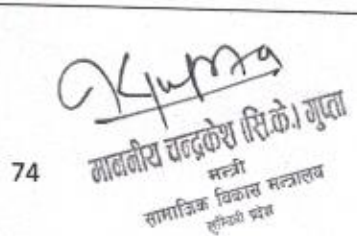 CKGupta
74
माननीय चन्द्रकेश (सि.के.) गुप्ता
मन्त्री
सामाजिक विकास मन्त्रालय
लुम्बिनी प्रदेश